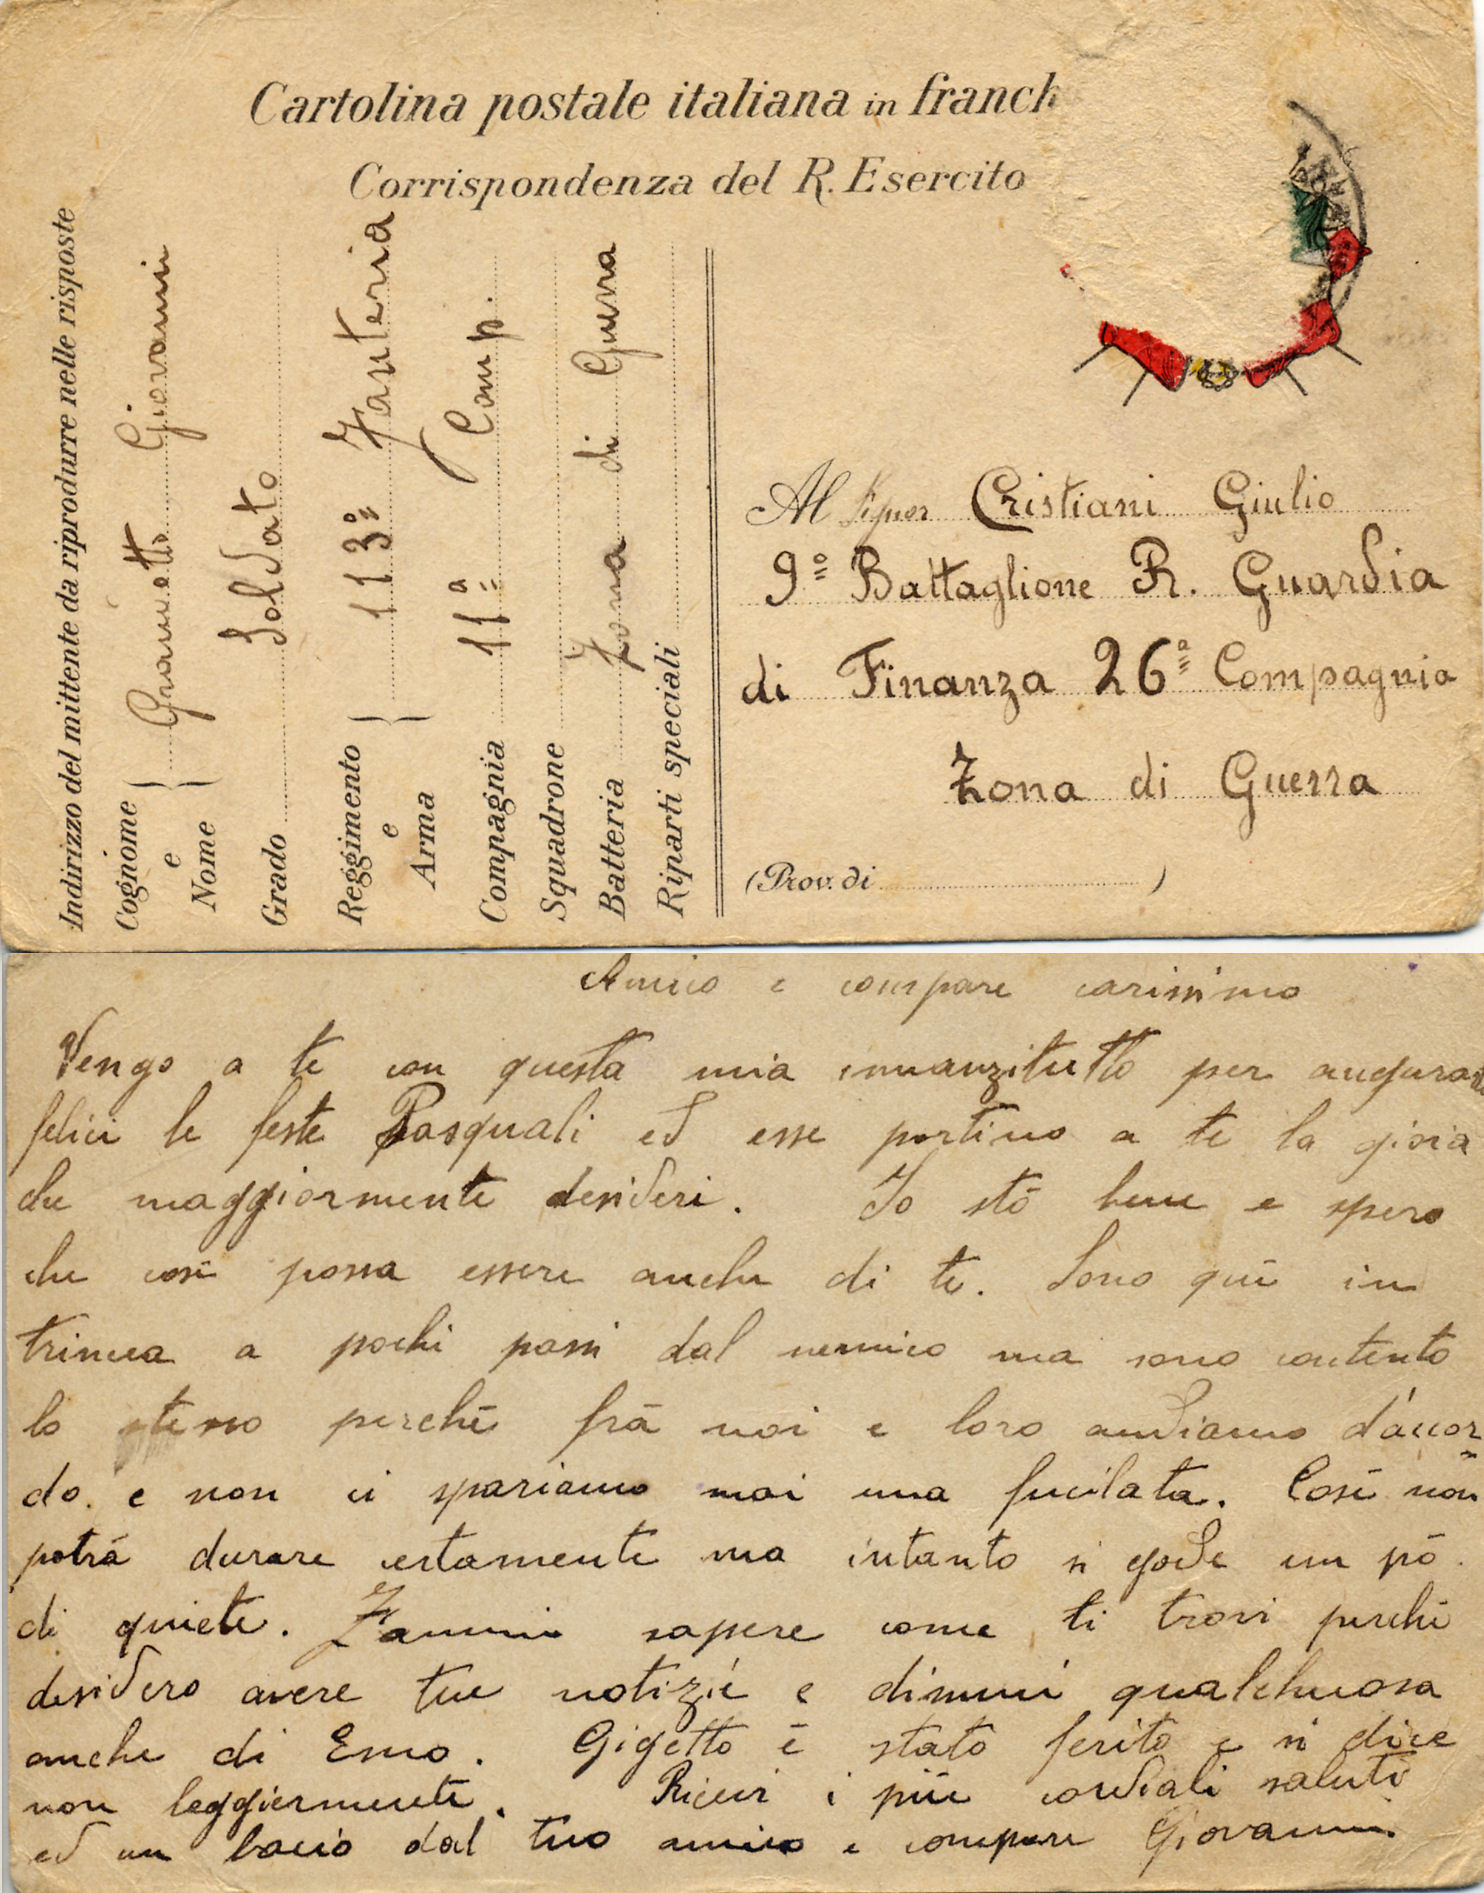 Cartolina postale italiana in franch
Corrispondenza del R. Esercito
Indirizzo del mittente da riprodurre nelle risposte
Cognome e Nome Giovanni
Grado Soldato
Reggimento e Arma 113º Fanteria
Compagnia 11ª Comp.
Squadrone
Batteria Zona di Guerra
Riparti speciali
Al Signor Cristiani Giulio
9º Battaglione R. Guardia
di Finanza 26ª Compagnia
Zona di Guerra
(Prov. di )
Amico e compare carissimo
Vengo a te con questa mia innanzitutto per augurarti
felici le feste Pasquali ed esse portino a te la gioia
che maggiormente desideri. Io stó bene e spero
che cosi possa essere anche di te. Sono quí in
trincea a pochi passi dal nemico ma sono contento
lo stesso perché frá noi e loro andiamo d'accor
do. e non ci spariamo mai una fucilata. Cosí non
potrá durare certamente ma intanto si gode un pó
di quiete. Fammi sapere come ti trovi perché
desidero avere tue notizie e dimmi qualchecosa
anche di Emo. Gigetto é stato ferito e si dice
non leggiermente. Ricevi i piú cordiali saluti
ed un bacio dal tuo amico e compare Giovanni